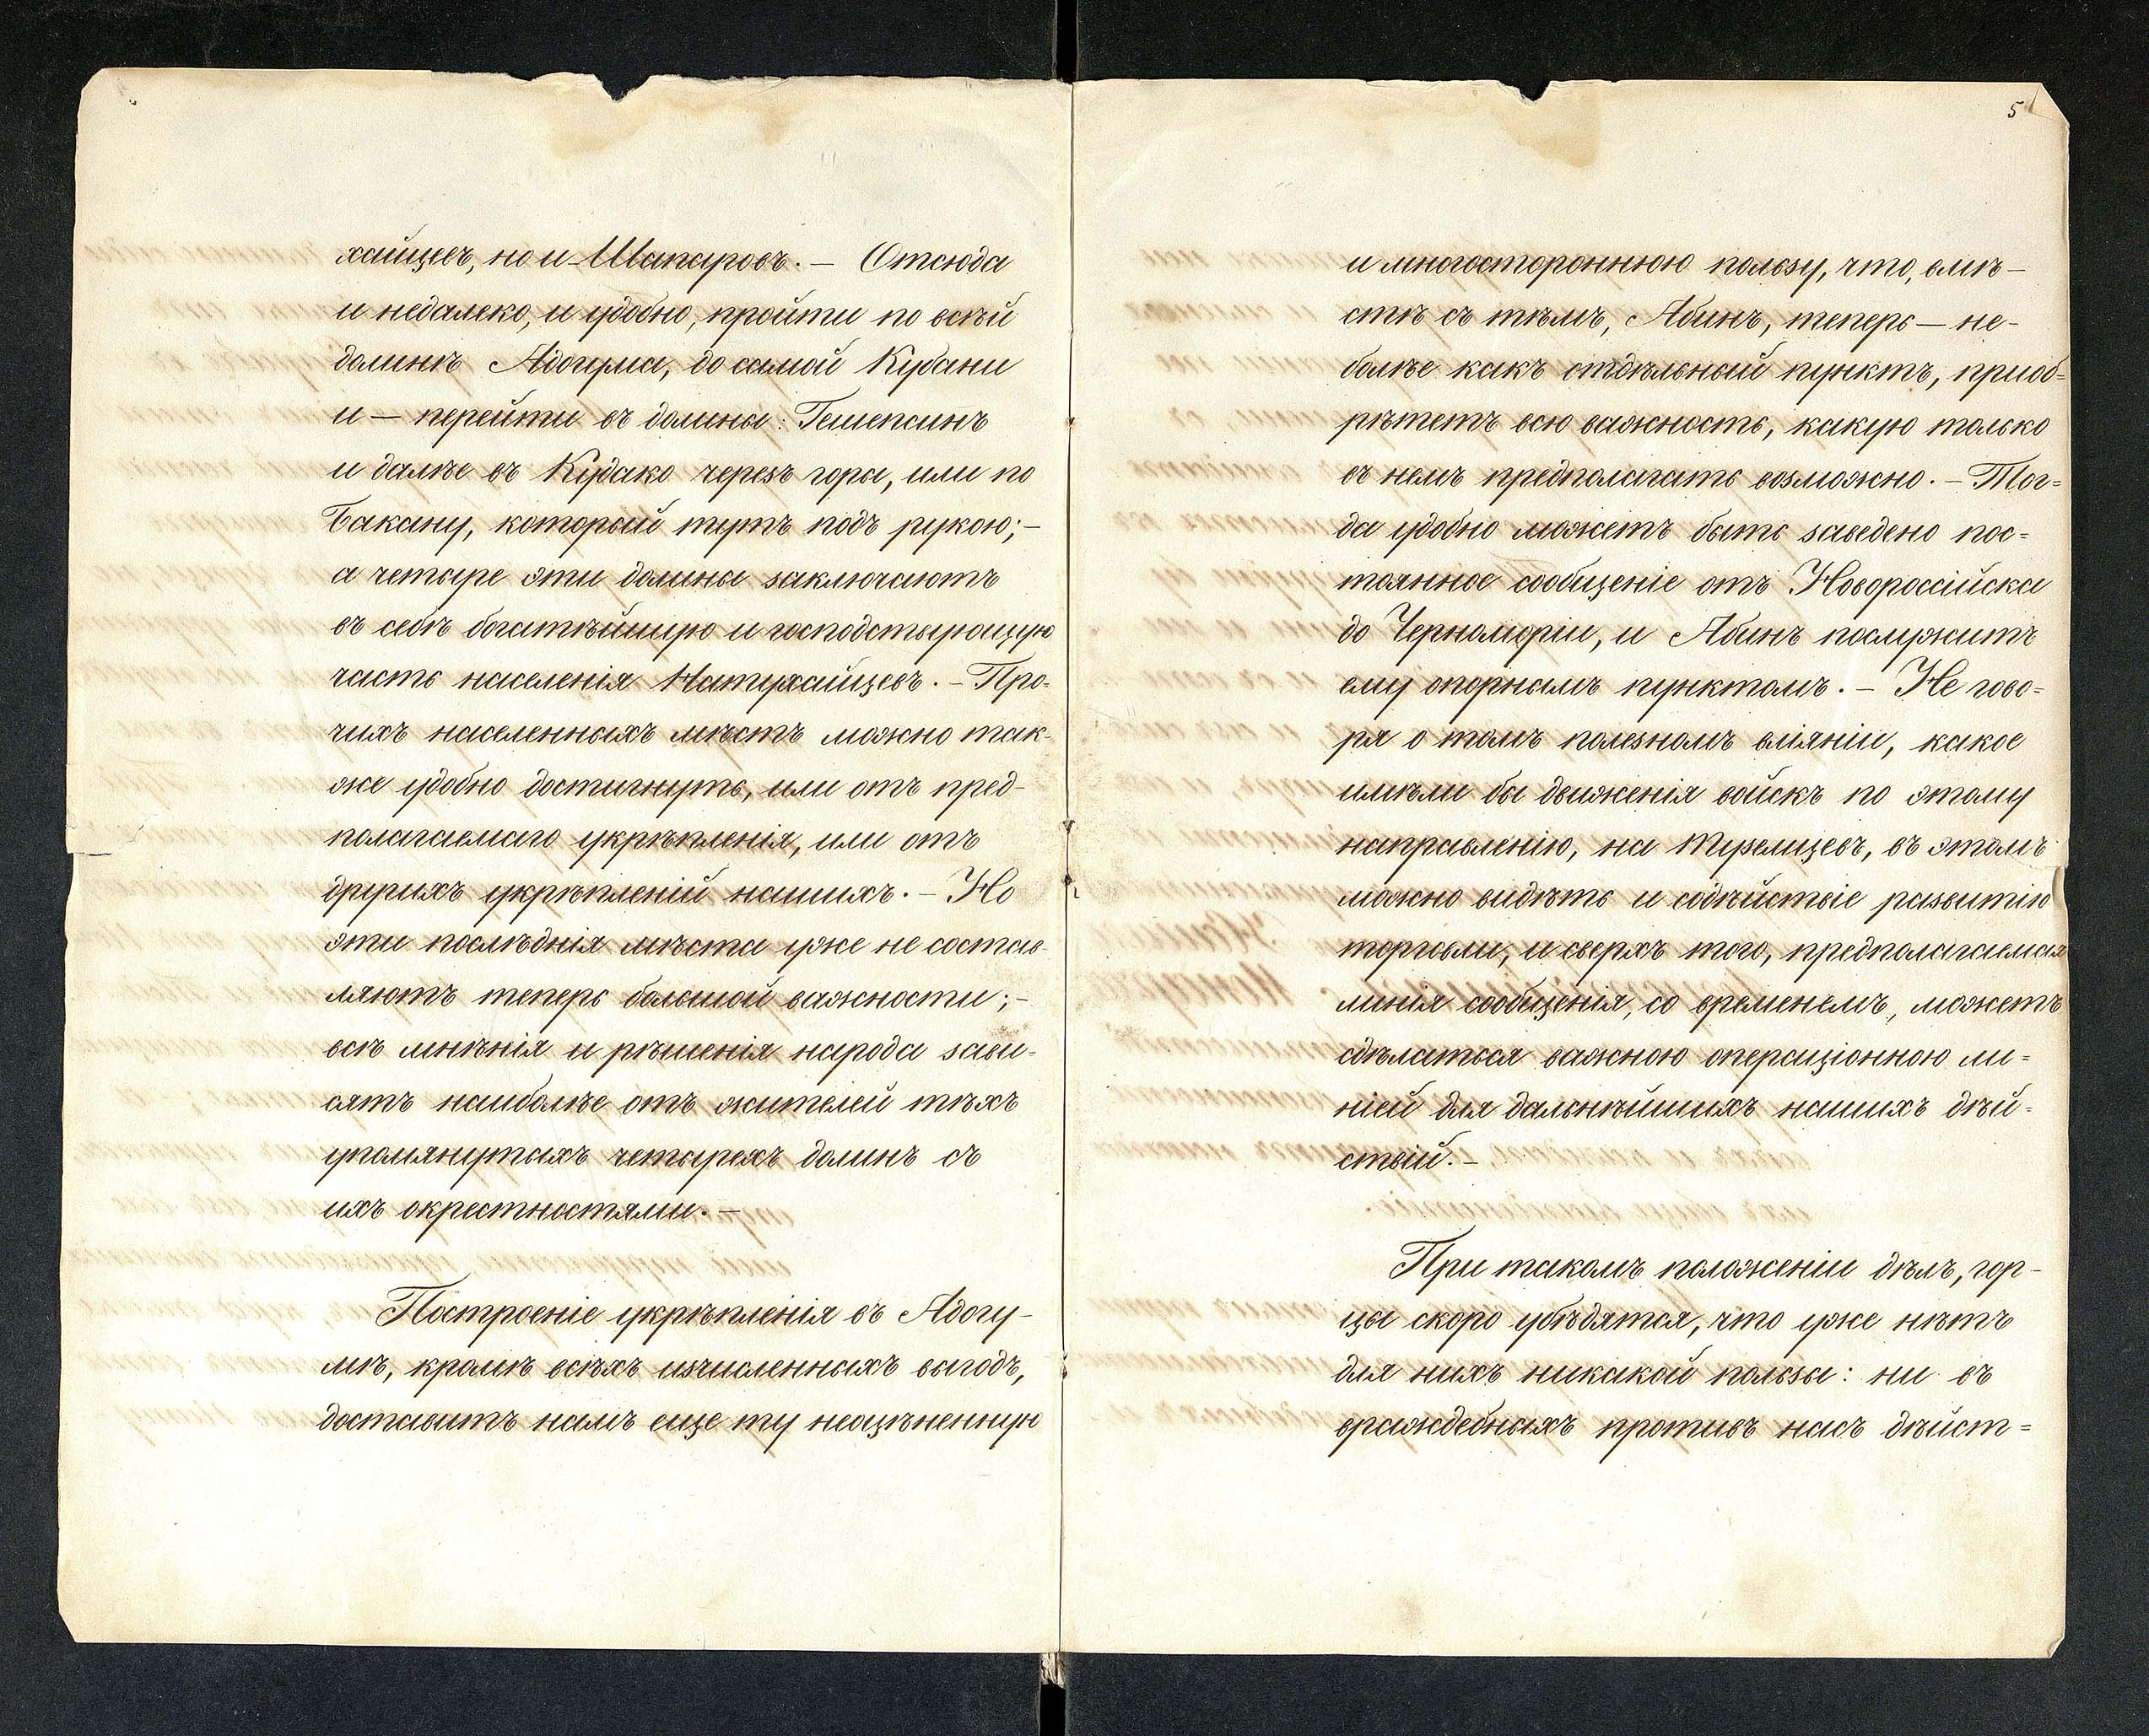 хайцевъ, но и Шапаровъ. — Отсюда
и недалеко, и удобно, пройти по всѣй
долинѣ Адогума, до самой Кубани
и — перейти въ долины: Гешепсинъ
и далѣе въ Кудако черезъ горы, или по
Бакану, который тутъ подъ рукою; —
а четыре эти долины заключаютъ
въ себѣ богатѣйшую и господствующую
часть населенія Натухайцевъ. — Про-
чихъ населенныхъ мѣстъ можно так-
же удобно достигнуть, или отъ пред-
полагаемаго укрѣпленія, или отъ
другихъ укрѣпленій нашихъ. — Но
эти послѣднія мѣста уже не состав-
ляютъ теперь большой важности; —
всѣ мнѣнія и рѣшенія народа зави-
сятъ наиболѣе отъ жителей тѣхъ
упомянутыхъ четырехъ долинъ съ
ихъ окрестностями. —
Построеніе укрѣпленія въ Адогу-
мѣ, кромѣ всѣхъ изчисленныхъ выгодъ,
доставитъ намъ еще ту неоцѣненную
5
и многостороннюю пользу, что, вмѣ-
стѣ съ тѣмъ, Абинъ, теперь — не-
болѣе какъ отдѣльный пунктъ, приоб=
рѣтетъ всю важность, какую только
въ немъ предполагать возможно. — Тог=
да удобно можетъ быть заведено пос=
тоянное сообщеніе отъ Новороссійска
до Черноморіи, и Абинъ послужитъ
ему опорнымъ пунктомъ. — Не гово=
ря о томъ полезномъ вліяніи, какое
имѣли бы движенія войскъ по этому
направленію, на Тузелицевъ, въ этомъ
можно видѣть и содѣйствіе развитію
торговли, и сверхъ того, предполагаемая
линія сообщенія, со временемъ, можетъ
сдѣлаться важною операціонною ли=
ніей для дальнѣйшихъ нашихъ дѣй=
ствій. —
При такомъ положеніи дѣлъ, гор-
цы скоро убѣдятся, что уже нѣтъ
для нихъ никакой пользы: ни въ
враждебныхъ противъ насъ дѣйст=